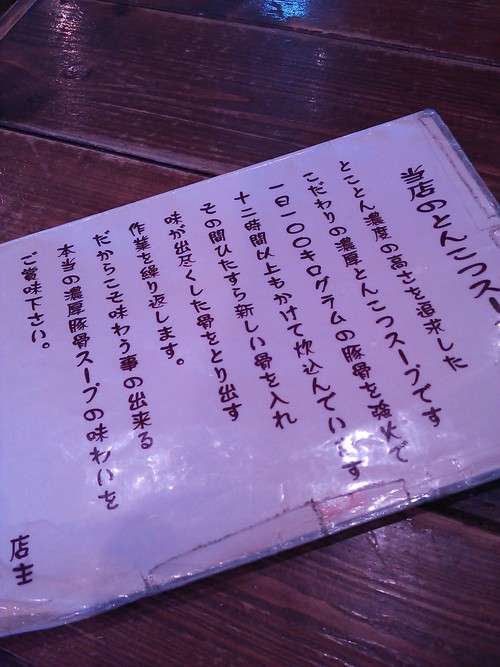 当店のとんこつスー
とことん濃度の高さを追求した
こだわりの濃厚とんこつスープです
一日一〇〇キログラムの豚骨を強火で
十二時間以上もかけて炊込んでいます
その間ひたすら新しい骨を入れ
味が出尽くした骨をとり出す
作業を繰り返します。
だからこそ味わう事の出来る
本当の濃厚豚骨スープの味わいを
ご賞味下さい。
店主